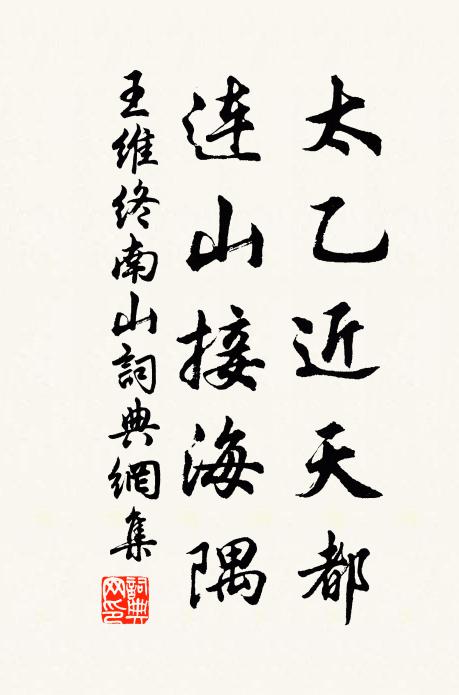 太乙近天都
连山接海隅
王维终南山詞典網集
詞典网印